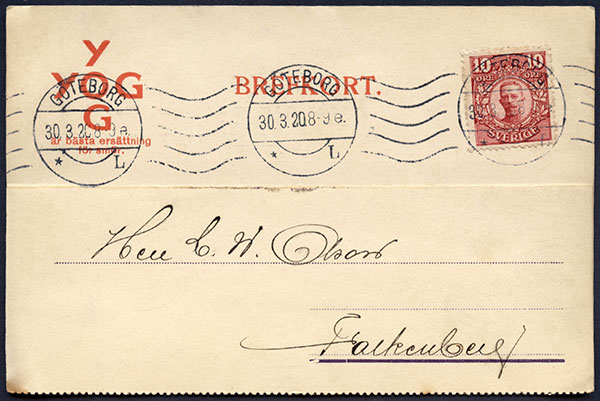 Y
YOGG
G
är bästa ersättning
för smör.
BREFKORT.
GÖTEBORG
30.3.20.8-9 e.
* L
GÖTEBORG
30.3.20.8-9 e.
* L
10 10
ÖRE ÖRE
SVERIGE
Herr L. W. Olsson
Falkenberg